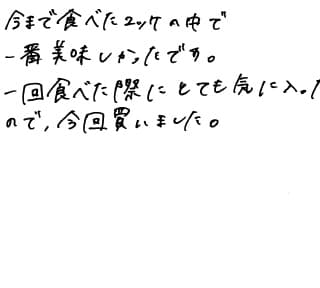 今まで食べたコッケの中で
一番美味しかったです。
一回食べた際にとても気に入った
ので,今回買いました。